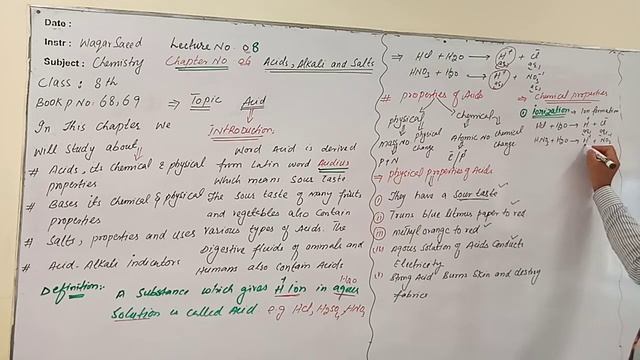 Date :
Instr : WaqarSaeed Lecture No. 08
Subject : Chemistry Chapter No 06 Acids, Alkali and Salts
Class : 8th
Book P No: 68,69 ⇒ Topic Acid
In This Chapter we
will study about
INTRODUCTION
Word Acid is derived
from Latin word
Which means Sour taste
The Sour taste of Many fruits
and vegetables also contain
various types of Acids. The
Digestive fluids of animals and
Humans also contain Acids
# Acids, its chemical & physical
properties
# Bases its chemical & physical
properties
# Salts, properties and uses
# Acid-Alkali indicators
Definition:- A substance which gives H Ion in aqous
H2O
Solution is called Acid e.g Hcl, H2SO4, HNO3
⇒ Hcl + H2O → H+ + Cl
HNO3 + H2O → H+ + NO3-1
# properties of Acids
physical chemical
mass no physical Atomic no chemical
change change
P+N E/P
⇒ physical properties of Acids
(i) They have a Sour taste ✓
(ii) Truns blue litmus paper to red
(iii) metyl orange to red ✓
(iv) Aqous Solution of Acids Conducts
Electricity
(v) Strong Acid Burns Skin and destroy
fabrics
⇒ Chemical properties
① Ionization → Ion formation
Hcl + H2O → H + Cl
HNO3 + H2O → H + NO3